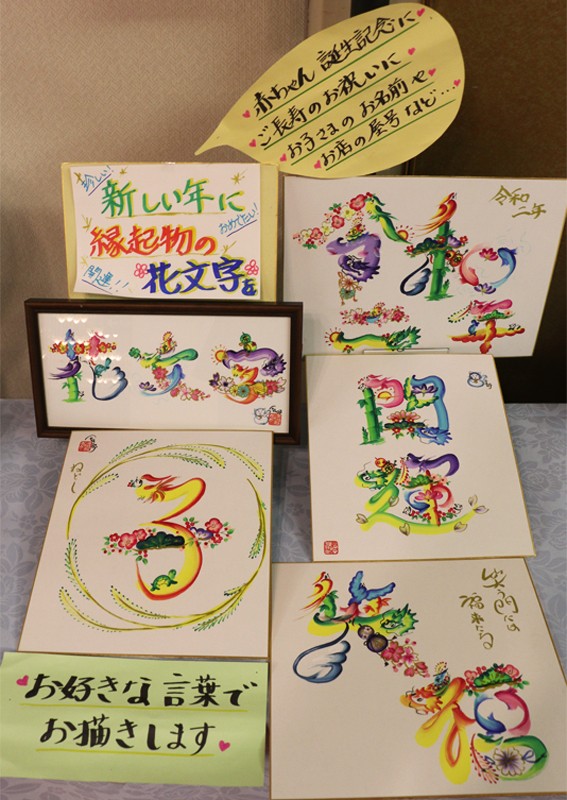 赤ちゃん 誕生記念に
ご長寿のお祝いに
お子さまのお名前や
お店の屋号など…
珍しい!
新しい年に
おめでたい!
縁起物の
開運!!
花文字を
令和
二年
令和
二年
花文字
開運
ねどし
子
笑う門には
福来たる
福
お好きな言葉で
お描きします